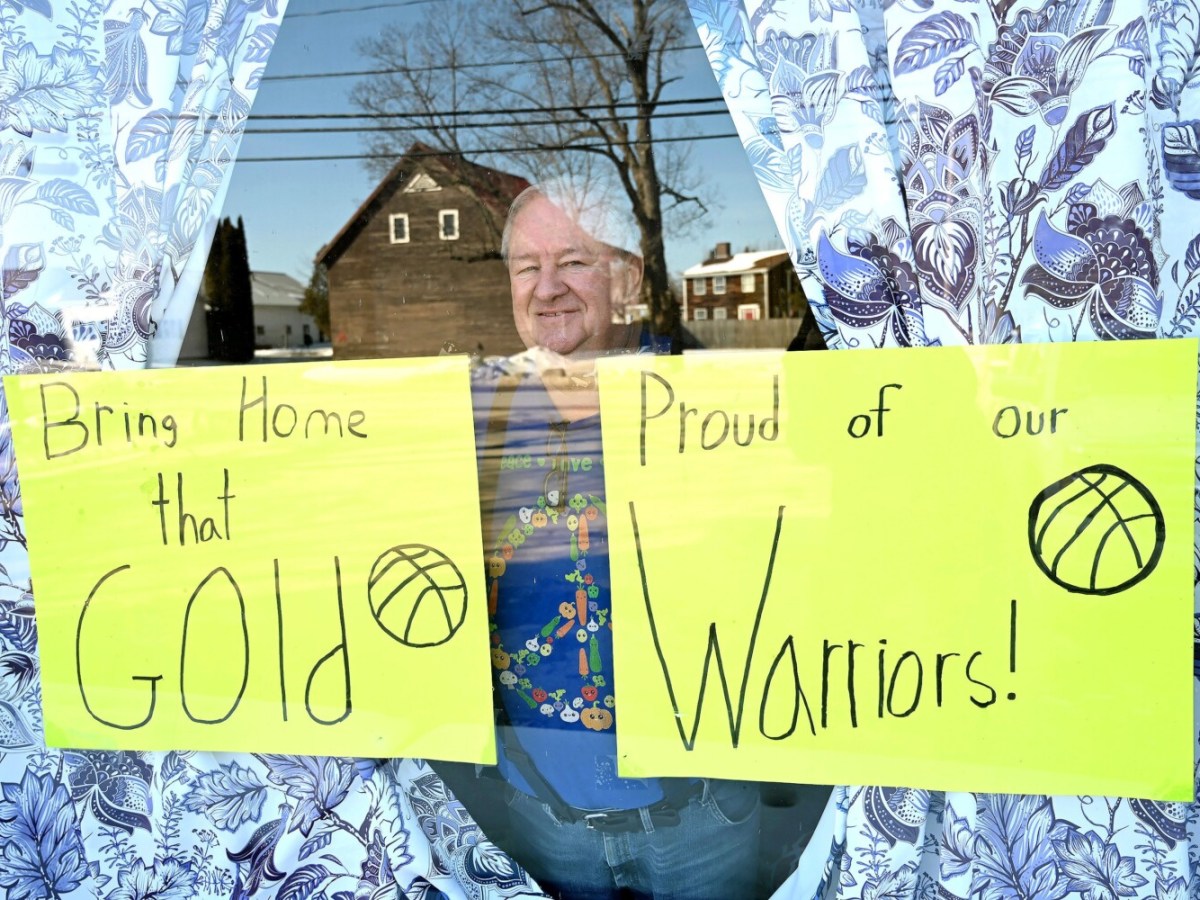 Bring Home
that
GOld
Proud of our
Warriors!